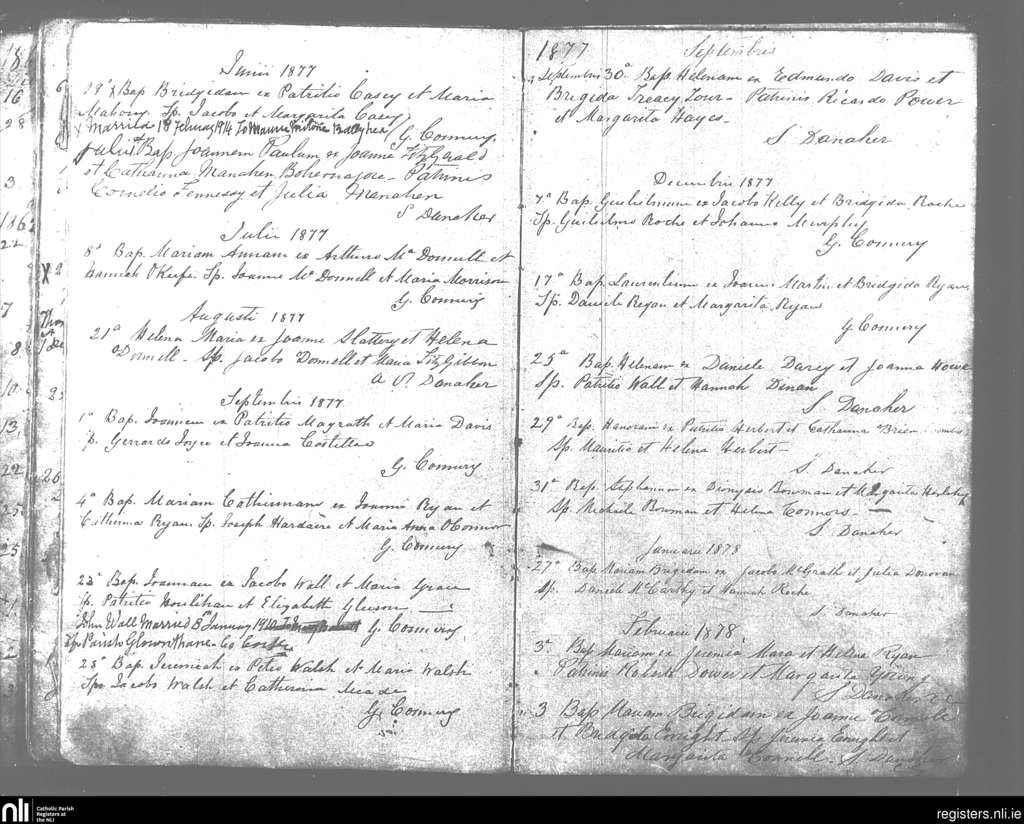 Junii 1877
29 X Bap Bridgidam ex Patritio Casey et Maria
Mahony. Sp. Jacobo et Margarita Casey
X Married 18 February 1914 To Maurice
G. Connery.
Julii Bap Joannem Paulum ex Joanne FitzGerald
et Catharina Manahen, Bohernagore - Patrinis
Cornelio Hennessy et Julia Manahen
S Danaher
Julii 1877
8ª Bap. Mariam Annam ex Arthuro Mc Donnell et
Hannah O'Keefe. Sp. Joanne Mc Donnell et Maria Morrison
G. Connery
Augusti 1877
21ª Helena Maria ex Joanne Slattery et Helena
O'Donnell - Sp. Jacobo O'Donnell et Maria FitzGibbon
S. Danaher
Septembris 1877
1ª Bap. Joannem ex Patritio Magrath et Maria Davis
Sp. Gerrardo Joyce et Joanna Costelloe
G. Connery
4ª Bap. Mariam Catherinam ex Joanne Ryan et
Catherina Ryan. Sp. Joseph Hardaire et Maria Anna O'Connor
G. Connery
23ª Bap. Joannem ex Jacobo Wall et Maria Grace
Sp. Patritio Houlihan et Elizabeth Gleeson
John Wall Married 8th January 1910
G. Connery
Parish Glounthane Co Cork
25ª Bap. Jeremiah ex Petro Walsh et Maria Walsh
Sp. Jacobo Walsh et Catherina Meade
G. Connery
1877
Septembris
Septembris 30ª Bap. Helenam ex Edmundo Davis et
Brigida Treacy - Patrinis Ricardo Power
et Margarita Hayes -
S Danaher
Decembris 1877
7ª Bap. Guilielmum ex Jacobo Kelly et Bridgida Roche
Sp. Guilielmo Roche et Johanna Murphy
G. Connery
17ª Bap. Laurentium ex Joanne Martin et Bridgida Ryan
Sp. Daniele Ryan et Margarita Ryan
G Connery
25ª Bap. Helenam ex Daniele Darcy et Joanna Howe
Sp. Patritio Wall et Hannah Dinan
S Danaher
29ª Bap. Honoram ex Patritio Herbert et Catharina Brien
Sp. Mauritio et Helena Herbert -
S. Danaher
31ª Bap. Stephanum ex Dionysio Bowman et Margarita
Sp. Michaele Bowman et Helena Connors -
S. Danaher
Januarii 1878
27ª Bap Mariam Brigidam ex Jacobo McGrath et Julia Donovan
Sp. Daniele McCarthy et Hannah Roche
S. Danaher
Februarii 1878
3ª Bap Mariam ex Jeremia Mara et Helena Ryan
Patrinis Roberto Power et Margarita Young
S Danaher
3 Bap. Mariam Brigidam ex Joanne
et Bridgida Enright Sp Jeremia Enright et
Margarita Connell - S Danaher
nli
Catholic Parish
Registers at
the NLI
registers.nli.ie